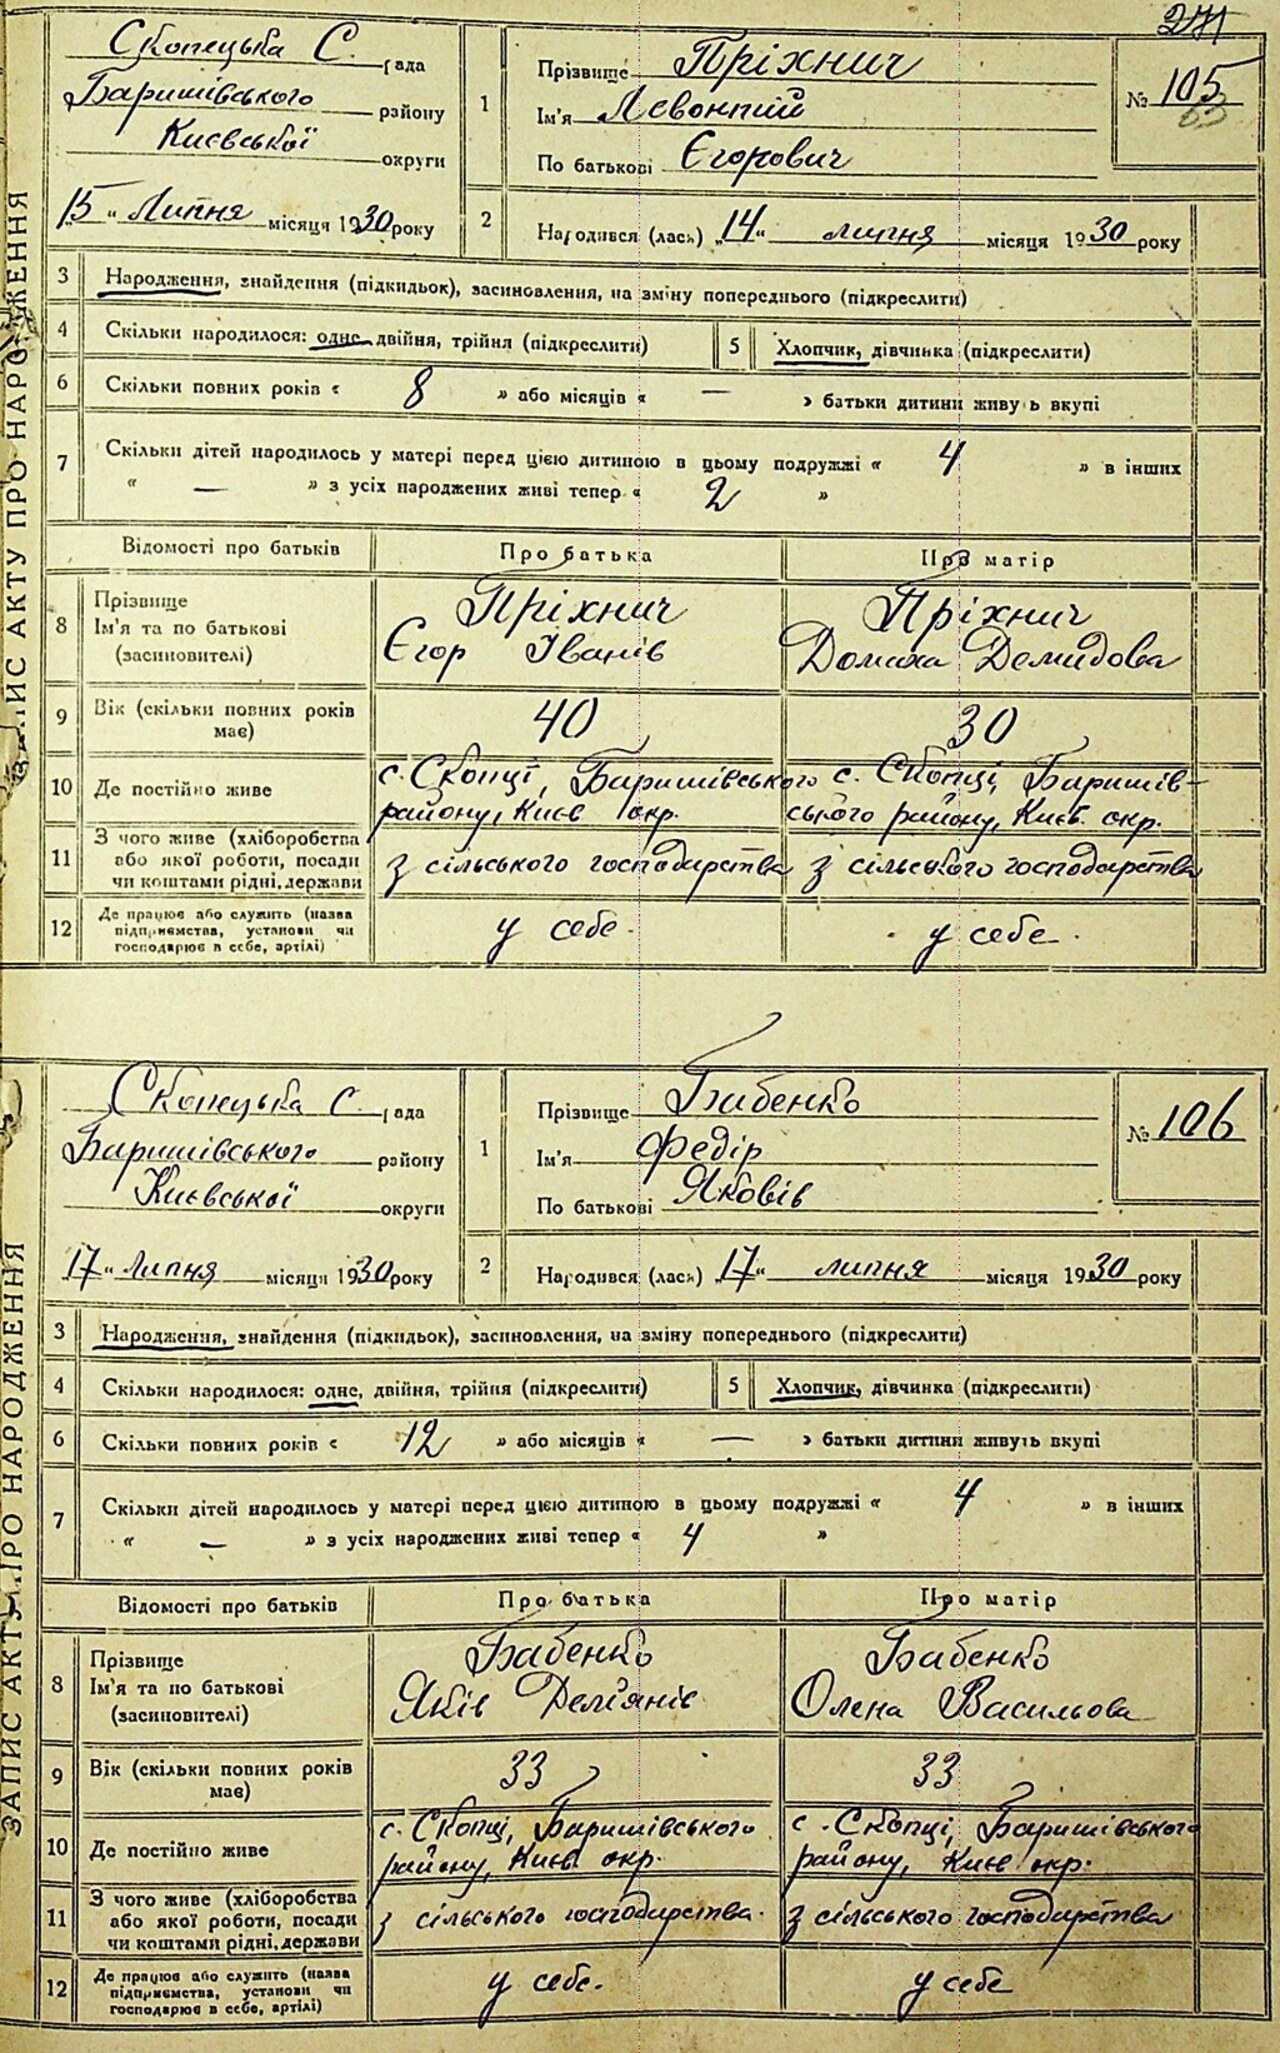 271
Скопецька С. рада
Баришівського району
Києвської округи
"15" Липня місяця 1930 року
1
Прізвище Пріхнич
Ім'я Лєвонтий
По батькові Єгорович
№ 105
63
2
Народився (лася) "14" липня місяця 1930 року
ЗАПИС АКТУ ПРО НАРОДЖЕННЯ
3 Народження, знайдення (підкидьок), засиновлення, на зміну попереднього (підкреслити)
4 Скільки народилося: одне, двійня, трійня (підкреслити) 5 Хлопчик, дівчинка (підкреслити)
6 Скільки повних років « 8 » або місяців « — » батьки дитини живуть вкупі
7 Скільки дітей народилось у матері перед цією дитиною в цьому подружжі « 4 » в інших
« — » з усіх народжених живі тепер « 2 »
Відомості про батьків Про батька Про матір
8 Прізвище Пріхнич Пріхнич
Ім'я та по батькові Єгор Іванів Домаха Демидова
(засиновителі)
9 Вік (скільки повних років 40 30
має)
10 Де постійно живе с. Скопці, Баришівського с. Скопці, Баришів-
району, Києв окр. ського району, Києв. окр.
11 З чого живе (хліборобства
або якої роботи, посади з сільського господарства з сільського господарства
чи коштами рідні, держави
12 Де працює або служить (назва
підприємства, установи чи у себе. у себе.
господарює в себе, артілі)
Скопецька С. рада
Баришівського району
Києвської округи
"17" Липня місяця 1930 року
1
Прізвище Бабенко
Ім'я Федір
По батькові Яковів
№ 106
2
Народився (лася) "17" липня місяця 1930 року
ЗАПИС АКТУ ПРО НАРОДЖЕННЯ
3 Народження, знайдення (підкидьок), засиновлення, на зміну попереднього (підкреслити)
4 Скільки народилося: одне, двійня, трійня (підкреслити) 5 Хлопчик, дівчинка (підкреслити)
6 Скільки повних років « 12 » або місяців « — » батьки дитини живуть вкупі
7 Скільки дітей народилось у матері перед цією дитиною в цьому подружжі « 4 » в інших
« — » з усіх народжених живі тепер « 4 »
Відомості про батьків Про батька Про матір
8 Прізвище Бабенко Бабенко
Ім'я та по батькові Яків Дем'янів Олена Васильова
(засиновителі)
9 Вік (скільки повних років 33 33
має)
10 Де постійно живе с. Скопці, Баришівського с. Скопці, Баришівського
району, Києв. окр. району, Києв окр.
11 З чого живе (хліборобства
або якої роботи, посади з сільського господарства. з сільського господарства
чи коштами рідні, держави
12 Де працює або служить (назва
підприємства, установи чи у себе. у себе
господарює в себе, артілі)